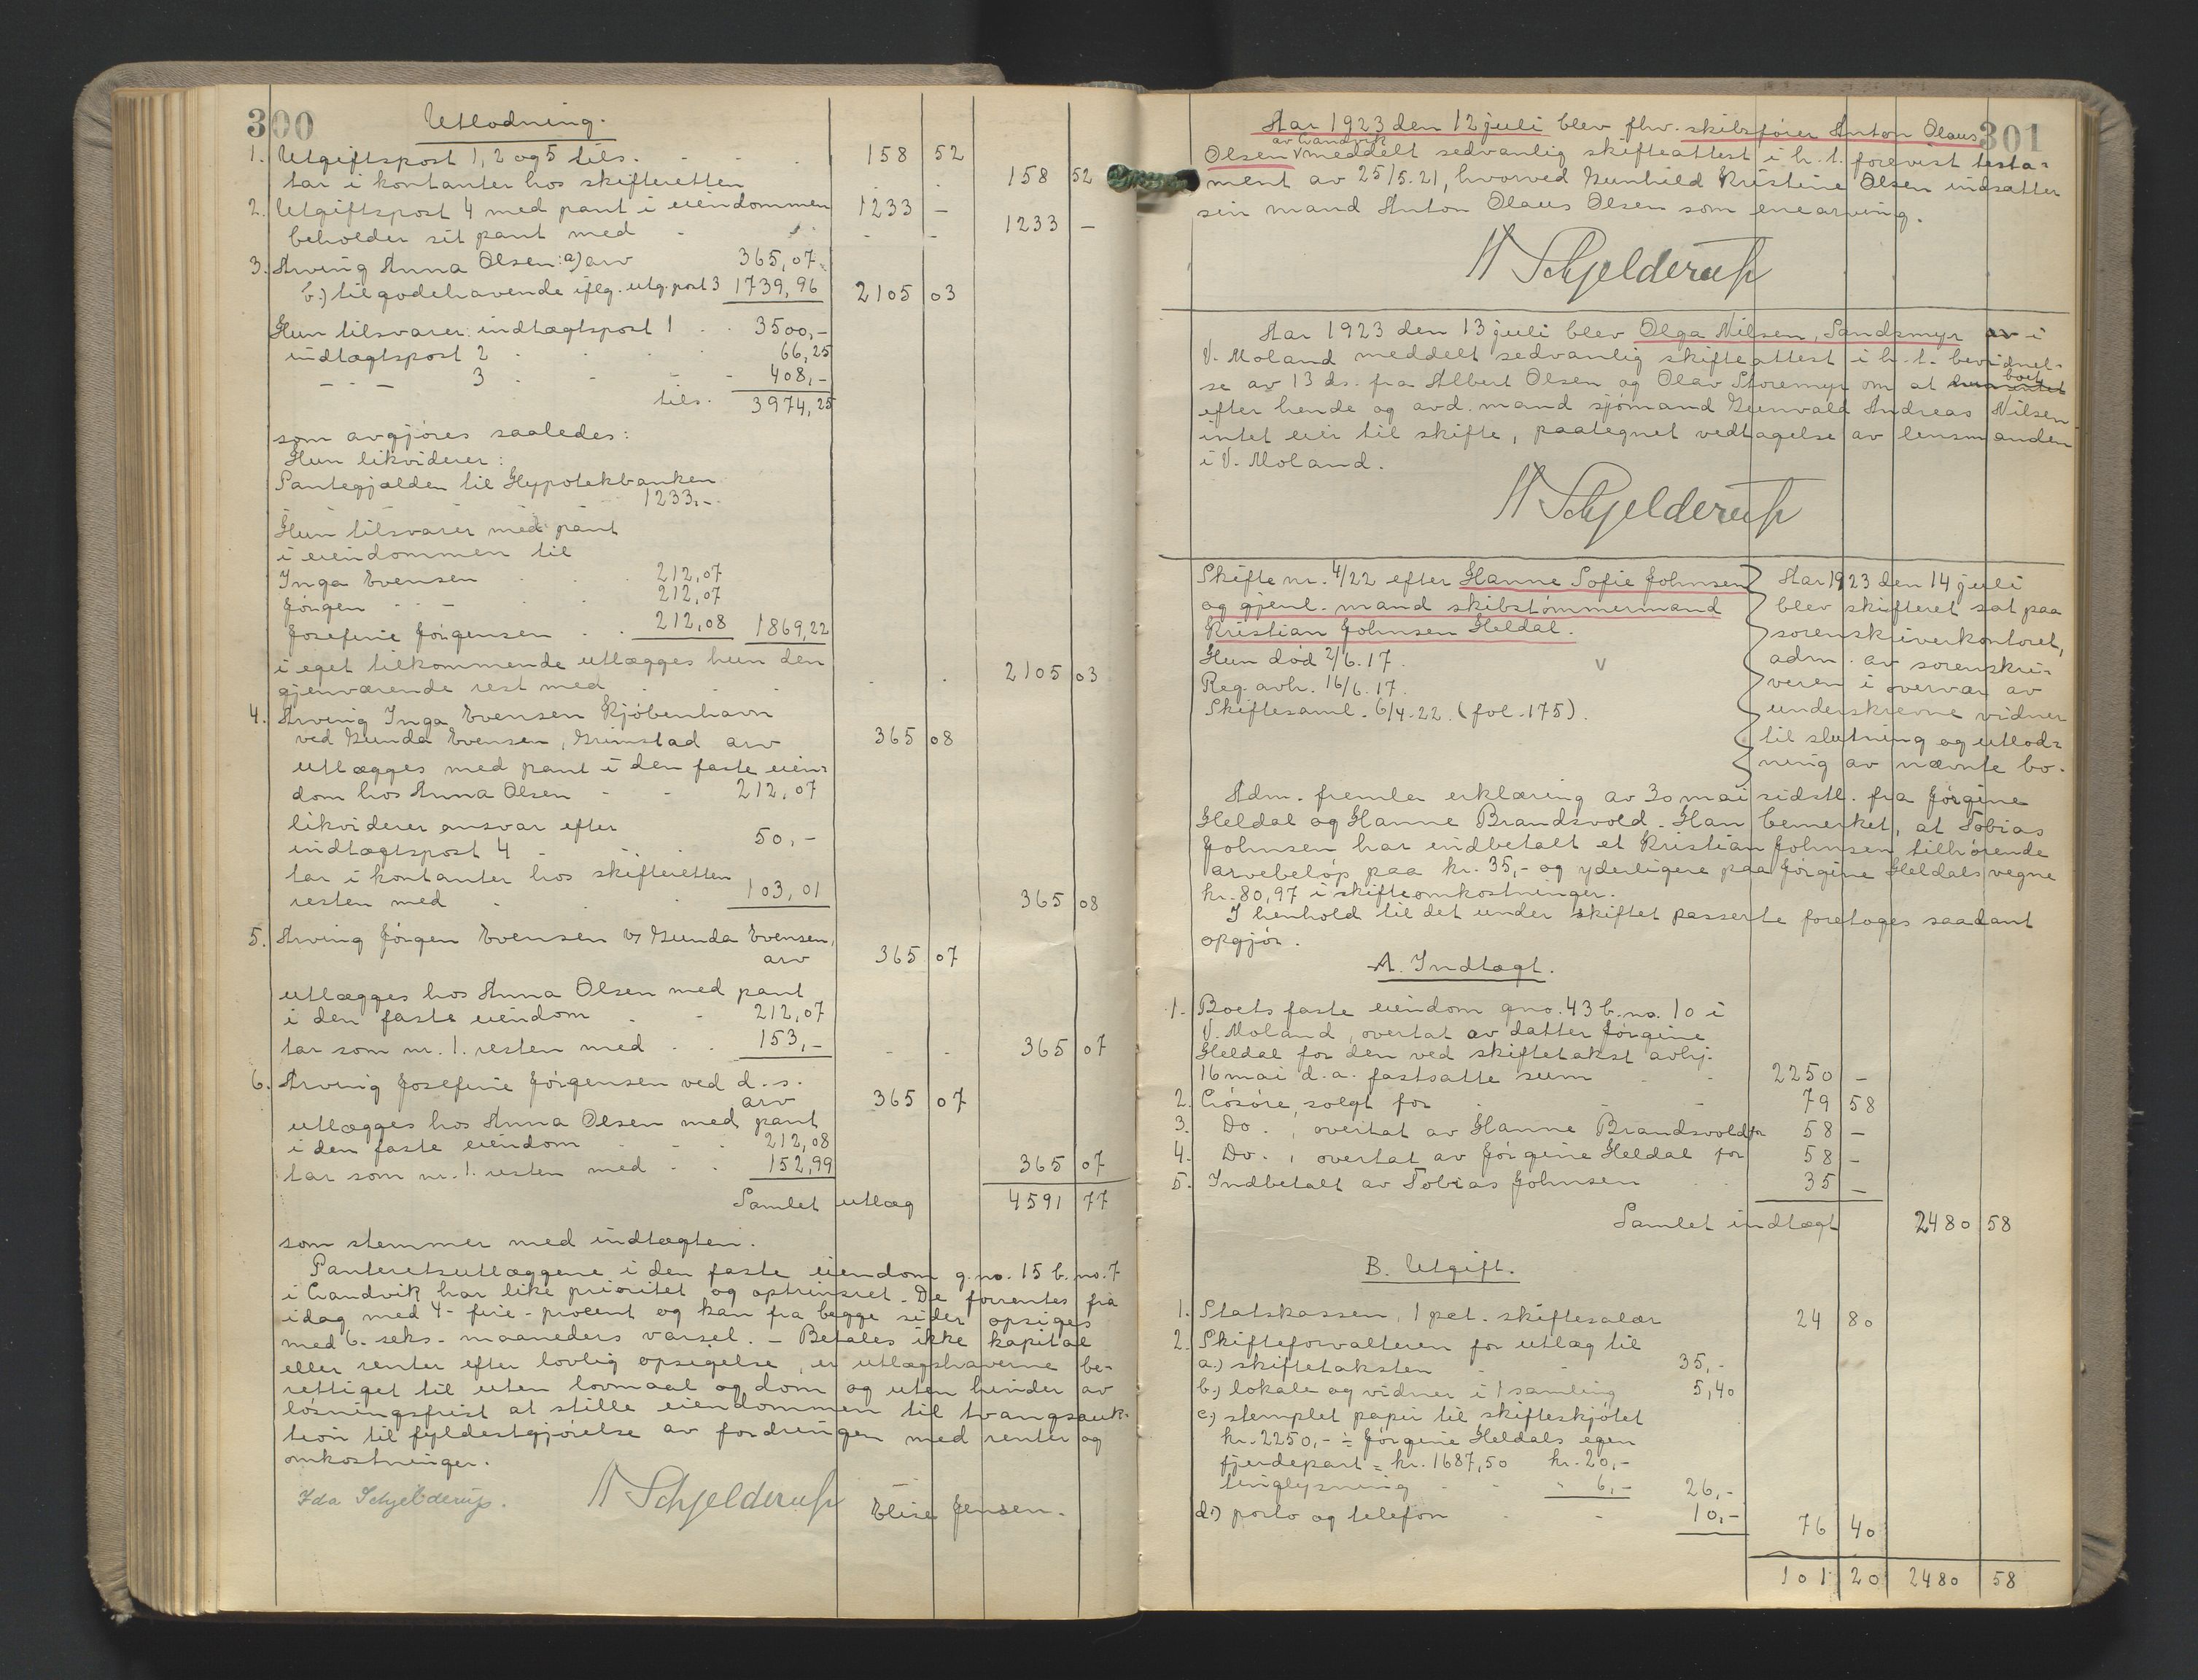 300
Utlodning.
1. Utgiftspost 1, 2 og 5 tils. 158 52
tar i kontanter hos skifteretten 158 52
2. Utgiftspost 4 med pant i eiendommen 1233 -
beholder sit pant med 1233 -
3. Arving Anna Olsen: a) arv 365,07
b.) tilgodehavende iflg. utg. post 3 1739,96 2105 03
Hun tilsvarer: indtægtspost 1 3500,-
indtægtspost 2 66,25
- " - 3 408,-
tils. 3974,25
som avgjøres saaledes:
Hun likviderer:
Pantegjælden til Hypotekbanken
1233,-
Hun tilsvarer med pant
i eiendommen til
Inga Evensen 212,07
Jørgen - " - 212,07
Josefine Jørgensen 212,08 1869,22
i eget tilkommende utlægges hun den
gjenværende rest med 2105 03
4. Arving Inga Evensen Kjøbenhavn
ved Gunda Evensen, Grimstad arv 365 08
utlægges med pant i den faste eien=
dom hos Anna Olsen 212,07
likviderer ansvar efter
indtægtspost 4 50,-
tar i kontanter hos skifteretten
resten med 103,01 365 08
5. Arving Jørgen Evensen v/ Gunda Evensen,
arv 365 07
utlægges hos Anna Olsen med pant
i den faste eiendom 212,07
tar som nr. 1. resten med 153,- 365 07
6. Arving Josefine Jørgensen ved d.s.
arv 365 07
utlægges hos Anna Olsen med pant
i den faste eiendom 212,08
tar som nr. 1. resten med 152,99 365 07
Samlet utlæg 4591 77
som stemmer med indtægten.
Panteretsutlæggene i den faste eiendom g.no. 15 b.no. 7
i Crandvik har like prioritet og optrinsret. De forrentes fra
idag med 4 - fire - procent og kan fra begge sider opsiges
med 6 - seks - maaneders varsel. - Betales ikke kapital
eller renter efter lovlig opsigelse, er utlægshaverne be-
rettiget til uten lovmaal og dom og uten hinder av
løsningsfrist at stille eiendommen til tvangsauk=
tion til fyldestgjørelse av fordringen med renter og
omkostninger.
Ida Schjelderup. H Schjelderup Elise Jensen.
301
Aar 1923 den 12 juli blev fhv. skibsfører Anton Olaus
av Crandvik
Olsen v meddelt sedvanlig skifteattest i h.t. forevist testa=
ment av 25/5.21, hvorved Gunhild Kristine Olsen indsætter
sin mand Anton Olaus Olsen som enearving.
H Schjelderup
Aar 1923 den 13 juli blev Olga Nilsen, Sandsmyr av i
V. Moland meddelt sedvanlig skifteattest i h.t. bevidnel=
se av 13 ds. fra Albert Olsen og Olav Storemyr om at boet
efter hende og avd. mand sjømand Gunvald Andreas Nilsen
intet eier til skifte, paategnet vedtagelse av lensmanden
i V. Moland.
H Schjelderup
Skifte nr. 4/22 efter Hanne Sofie Johnsen
og gjenl. mand skibstømmermand
Kristian Johnsen Heldal.
Hun død 2/6.17.
Reg. avh. 16/6.17.
Skiftesaml. 6/4-22. (fol. 175).
v
Aar 1923 den 14 juli
blev skifteret sat paa
sorenskriverkontoret,
adm. av sorenskri=
veren i overvær av
underskrevne vidner
til slutning og utlod=
ning av nævnte bo.
Adm. fremla erklæring av 30 mai sidstl. fra Jørgine
Heldal og Hanne Brandsvold. Han bemerket, at Tobias
Johnsen har indbetalt et Kristian Johnsen tilhørende
arvebeløp paa kr. 35,- og yderligere paa Jørgine Heldals vegne
kr. 80,97 i skifteomkostninger.
I henhold til det under skiftet passerte foretoges saadant
opgjør.
A. Indtægt.
1. Boets faste eiendom gno. 43 b.no. 10 i
V. Moland, overtat av datter Jørgine
Heldal for den ved skiftetakst avhj.
16 mai d.a. fastsatte sum 2250 -
2. Løsøre, solgt for 79 58
3. Do., overtat av Hanne Brandsvold for 58 -
4. Do., overtat av Jørgine Heldal for 58 -
5. Indbetalt av Tobias Johnsen 35 -
Samlet indtægt 2480 58
B. Utgift.
1. Statskassen, 1 pct. skiftesalær 24 80
2. Skifteforvalteren for utlæg til
a.) skiftetaksten 35,-
b.) lokale og vidner i 1 samling 5,40
c.) stemplet papir til skifteskjøtet
kr. 2250,- ÷ Jørgine Heldals egen
fjerdepart = kr. 1687,50 kr. 20,-
tinglysning " 6,- 26,-
d.) porto og telefon 10,- 76 40
101 20 2480 58